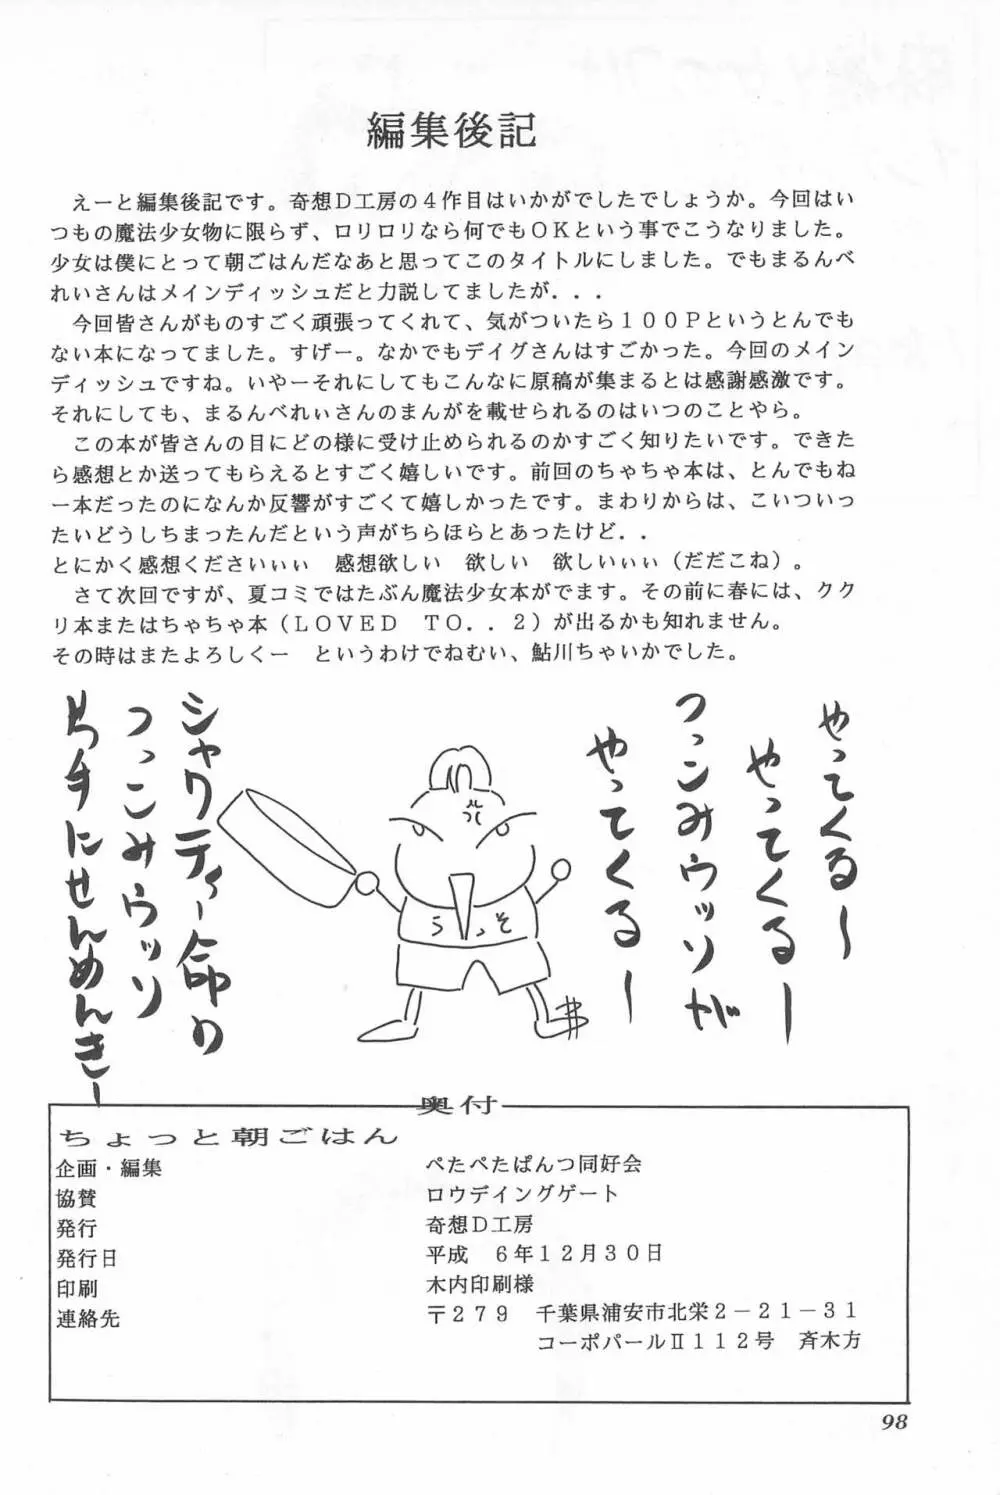 編集後記
えーと編集後記です。奇想Ｄ工房の４作目はいかがでしたでしょうか。今回はい
つもの魔法少女物に限らず、ロリロリなら何でもＯＫという事でこうなりました。
少女は僕にとって朝ごはんだなあと思ってこのタイトルにしました。でもまるんべ
れいさんはメインディッシュだと力説してましたが．．．
今回皆さんがものすごく頑張ってくれて、気がついたら１００Ｐというとんでも
ない本になってました。すげー。なかでもデイグさんはすごかった。今回のメイン
ディッシュですね。いやーそれにしてもこんなに原稿が集まるとは感謝感激です。
それにしても、まるんべれぃさんのまんがを載せられるのはいつのことやら。
この本が皆さんの目にどの様に受け止められるのかすごく知りたいです。できた
ら感想とか送ってもらえるとすごく嬉しいです。前回のちゃちゃ本は、とんでもね
ー本だったのになんか反響がすごくて嬉しかったです。まわりからは、こいついっ
たいどうしちまったんだという声がちらほらとあったけど．．
とにかく感想くださいぃぃ　感想欲しい　欲しい　欲しいぃぃ（だだこね）。
さて次回ですが、夏コミではたぶん魔法少女本がでます。その前に春には、クク
リ本またはちゃちゃ本（ＬＯＶＥＤ　ＴＯ．．２）が出るかも知れません。
その時はまたよろしくー　というわけでねむい、鮎川ちゃいかでした。
やってくる〜
やってくる〜
つっこみウッソが
やってくる〜
うっそ
シャクティー命の
つっこみウッソ
片手にせんめんきー
奥付
ちょっと朝ごはん
企画・編集　ぺたぺたぱんつ同好会
協賛　ロウデイングゲート
発行　奇想Ｄ工房
発行日　平成　６年１２月３０日
印刷　木内印刷様
連絡先　〒２７９　千葉県浦安市北栄２－２１－３１
コーポパールⅡ１１２号　斉木方
98